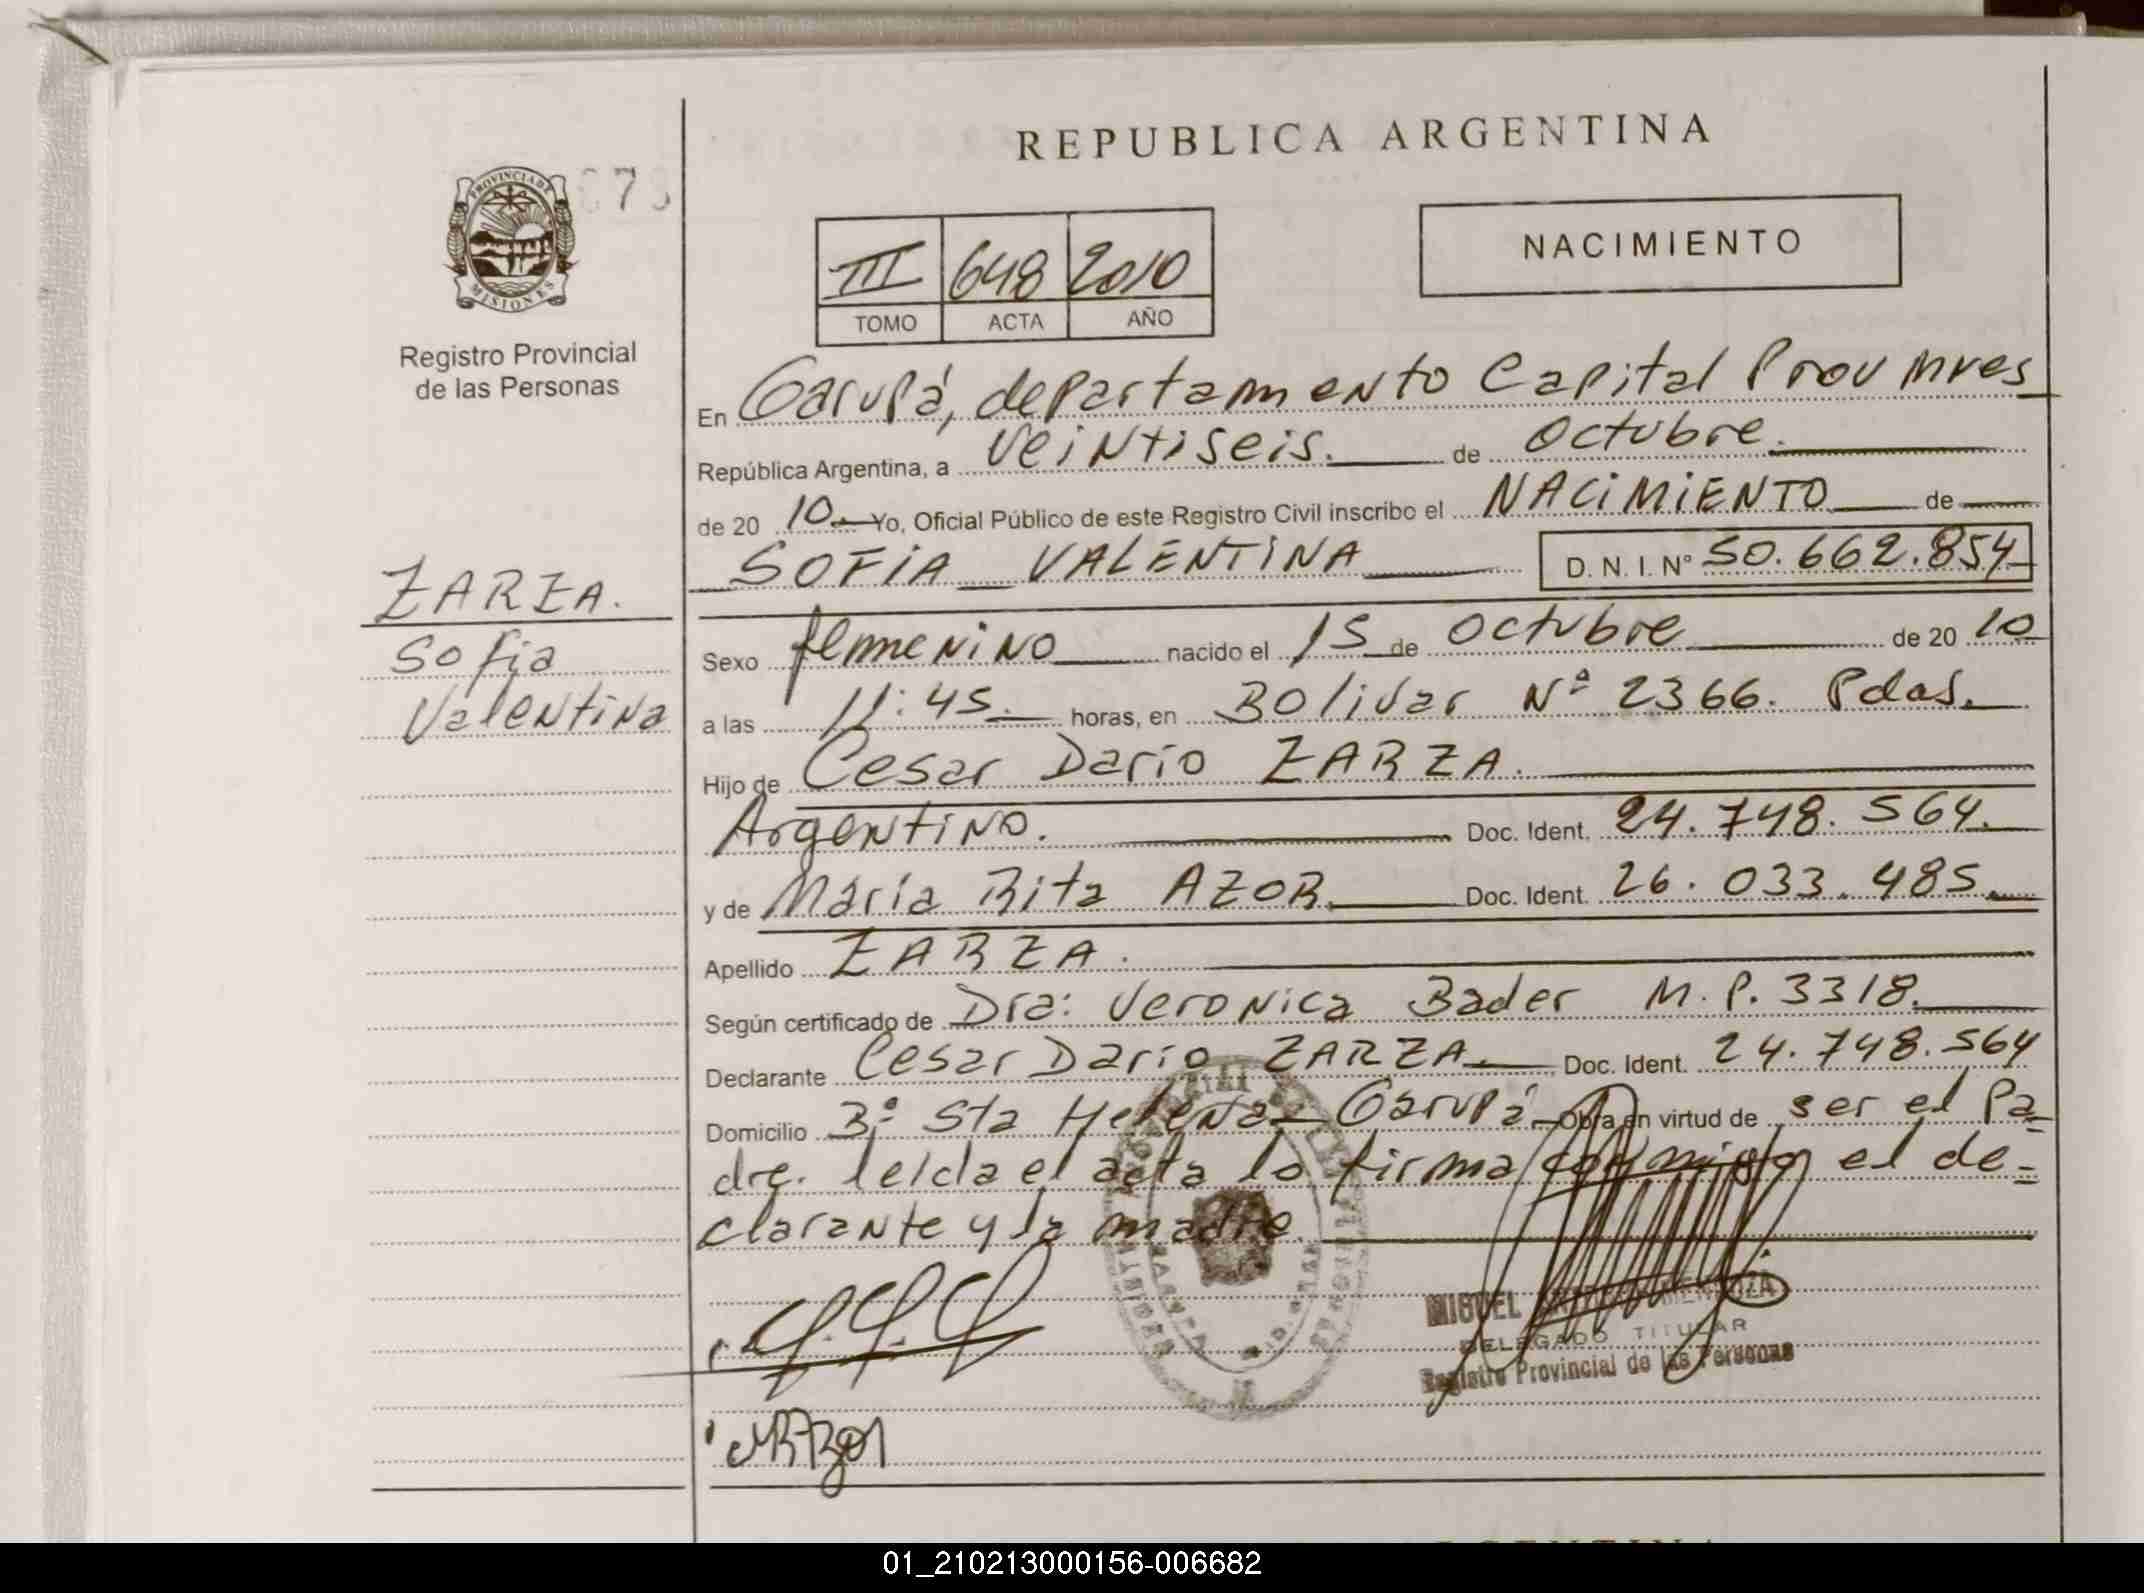 REPUBLICA ARGENTINA
PROVINCIA DE
MISIONES
Registro Provincial
de las Personas
III 648 2010
TOMO ACTA AÑO
NACIMIENTO
En Garupá, departamento Capital Prov Mnes
República Argentina, a veintiseis. de octubre.
de 20 10. Yo, Oficial Público de este Registro Civil inscribo el NACIMIENTO de
SOFIA VALENTINA D. N. I. Nº 50.662.854
ZARZA.
Sofia
Valentina
Sexo femenino nacido el 15 de octubre de 20 10
a las 11:45. horas, en Bolivar Nº 2366. Pdas.
Hijo de Cesar Dario ZARZA.
Argentino. Doc. Ident. 24.748.564.
y de María Rita AZOR. Doc. Ident. 26.033.485.
Apellido ZARZA.
Según certificado de Dra: Veronica Bader M.P. 3318.
Declarante Cesar Dario ZARZA. Doc. Ident. 24.748.564
Domicilio Bº Sta Helena Garupá Obra en virtud de ser el Pa-
dre. leida el acta lo firma conmigo el de-
clarante y la madre.
MIGUEL MENDOZA
DELEGADO TITULAR
Registro Provincial de las Personas
01_210213000156-006682